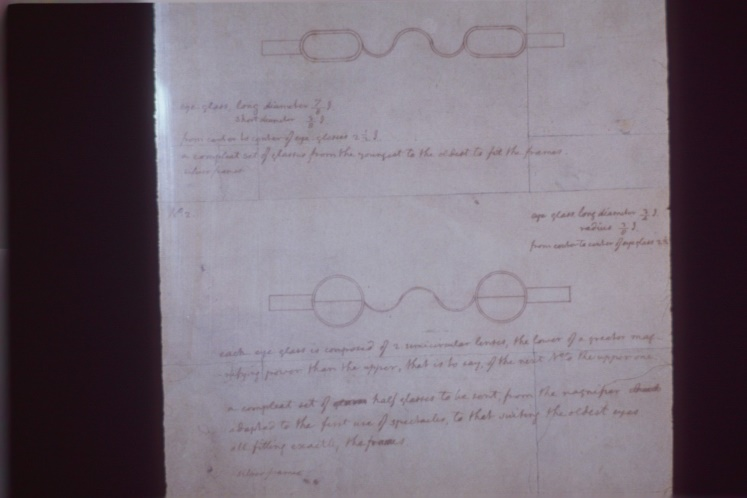 eye glass, long diameter 7/8 I.
short diameter 3/8 I
from center to center of eye-glasses 2 1/2 I.
a compleat set of glasses from the youngest to the oldest to fit the frames
silver frames
N° 2
eye glass long diameter 3/4 I.
radius 3/8 I.
from center to center of eye glass 2 1/2
each eye glass is composed of 2 semicircular lenses, the lower of a greater mag-
nifying power than the upper, that is to say, of the next N°. to the upper one
a compleat set of half glasses to be sent, from the magnifier
adapted to the first use of spectacles, to that suiting the oldest eyes
all fitting exactly, the frames
silver frames